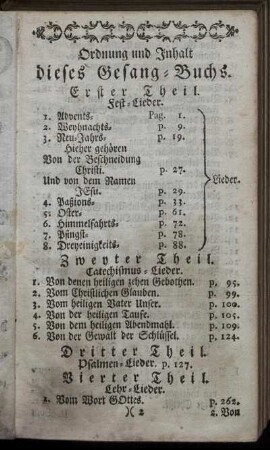 Ordnung und Inhalt
dieses Gesang-Buchs.
Erster Theil.
Fest-Lieder.
1. Advents- Pag. 1.
2. Weyhnachts- p. 9.
3. Neu-Jahrs- p. 19.
Hieher gehören
Von der Beschneidung
Christi. p. 27.
Und von dem Namen
JEsu. p. 29.
4. Paßions- p. 33.
5. Oster- p. 61.
6. Himmelfahrts- p. 72.
7. Pfingst- p. 78.
8. Dreyeinigkeits- p. 88.
Lieder.
Zweyter Theil.
Catechismus-Lieder.
1. Von denen heiligen zehen Gebothen. p. 95.
2. Vom Christlichen Glauben. p. 99.
3. Vom heiligen Vater Unser. p. 100.
4. Von der heiligen Taufe. p. 105.
5. Von dem heiligen Abendmahl. p. 109.
6. Von der Gewalt der Schlüssel. p. 124.
Dritter Theil.
Psalmen-Lieder. p. 127.
Vierter Theil.
Lehr-Lieder.
1. Vom Wort GOttes. p. 262.
)( 2 2. Von